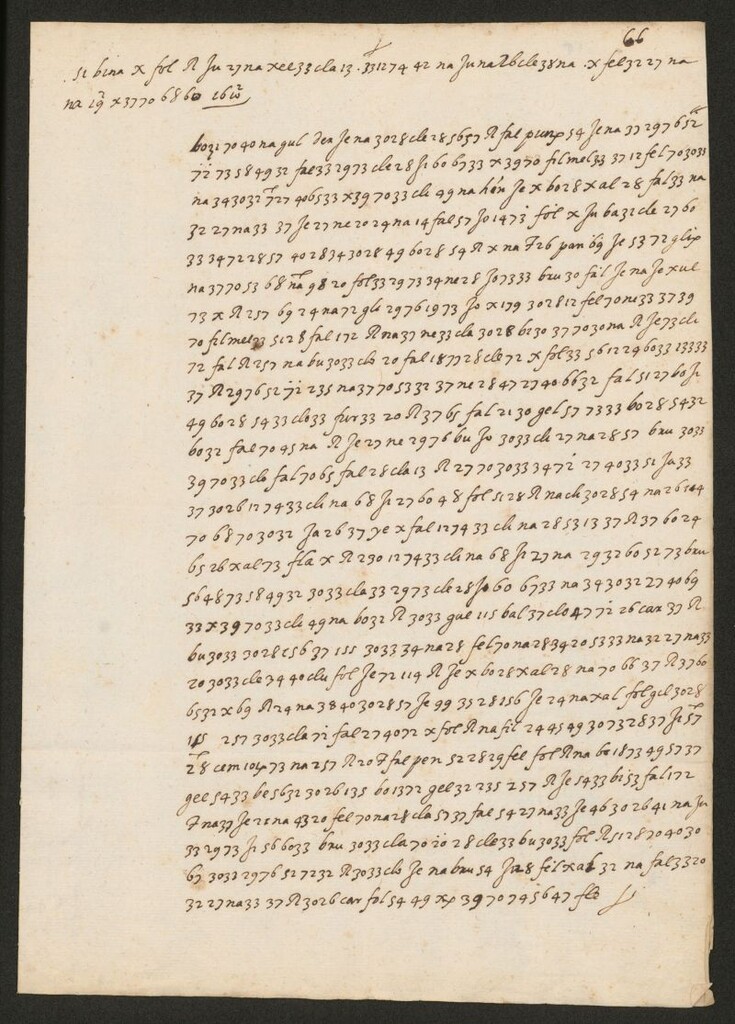 66
51 bina x fol R Ju 27 na xel 33 cla 13 . 331274 42 na Ju na 26 cle 38 na . x fel 32 27 na
na 19 x 3770 68 60
bo 31 70 40 na gul den Je na 3028 cle 28 5657 R fal 54 Je na 37 2976 52
72 73 58 49 32 fal 33 2973 cle 28 Ji 60 6733 x 3970 fil mel 33 37 12 fel 70 3033
na 34 3032 27 40 6533 x 397033 cle 49 na Je x bo 28 x al 28 fal 33 na
32 27 na 33 37 Je 27 ne 20 24 na 14 fal 57 Jo 1473 fol x Ju ba 31 cle 27 60
33 3472 28 57 40 28 34 30 28 49 60 28 54 R x na 26 pan 69 Je 53 72
na 3770 53 68 na 98 20 fol 33 2973 34 ne 28 Jo 7333 bru 30 fal Je na Jo x ul
73 x R 257 69 24 na 72 gle 2976 1973 Jo x 179 3028 12 fel 70 ne 33 3739
70 fil mel 33 5128 fal 172 R na 37 ne 33 cla 3028 bi 30 3770 30 na R Je 73 cle
72 fal R 257 na bu 3033 clo 20 fal 18 77 28 cle 72 x fol 33 5612 24 6033 13333
37 R 2976 52 72 235 na 3770 5332 37 ne 28 47 27 40 6632 fal 51 27 60 Ji
49 60 28 5433 clo 33 fur 33 20 R 3765 fal 21 30 gel 57 7333 bo 28 5432
bo 32 fal 70 45 na R Je 27 ne 2976 bu Jo 3033 cle 27 na 28 57 bru 3033
397033 clo fal 70 65 fal 28 cla 13 R 2770 3033 3472 27 4033 51 Ja 33
37 3026 127433 cle na 68 Ji 27 60 48 fol 5128 R na cle 3028 54 na 26 144
70 68 70 3032 Ja 26 37 ye x fal 127433 cle na 28 53 13 37 R 37 60 24
65 26 x al 73 fla x R 230 127433 cle na 68 Ji 27 na 2932 60 52 73 bru
56 48 73 58 49 32 3033 cla 33 2973 cle 28 Jo 60 6733 na 34 3032 27 40 69
33 x 397033 cle 49 na bo 32 R 3033 gue 115 bal 37 clo 47 72 26 car 37 R
bu 3033 3028 156 37 155 3033 34 na 28 fel 70 na 28 34 20 5333 na 32 27 na 33
20 3033 cle 34 40 clu fol Je 72 114 R Je x bo 28 x al 28 na 70 66 37 R 37 60
6532 x 69 R 24 na 38 40 30 28 57 Je 99 35 28 156 Je 24 na x al fol gel 3028
115 257 3033 cla 72 fal 27 40 72 x fol R na fil 24 45 49 30 73 28 37 Ji 57
28 cem 73 na 257 R 20 fal pen 52 28 29 fel fol R na be 1873 49 57 37
gel 5433 be 5632 3026 135 bo 1372 gel 32 235 257 R Je 5433 bi 53 fal 172
na 37 Je 28 na 43 20 fel 70 na 28 cla 57 37 fal 54 27 na 33 Je 46 30 26 41 na Ju
33 2973 Ji 56 6033 bru 3033 cla 70 20 28 cle 33 bu 3033 fol R 5128 70 40 30
67 3032 2976 52 72 32 R 3033 clo Je na bru 54 Ja 28 fel x al 32 na fal 33 20
32 27 na 33 37 R 3026 car fol 54 49 xp 39 70 74 56 47 flo